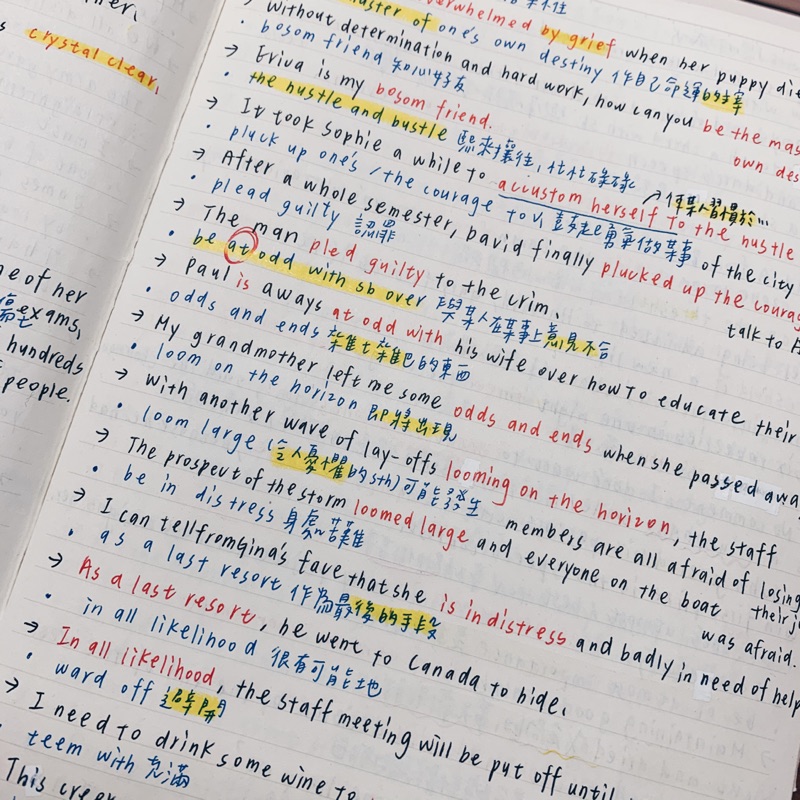 crystal clear.
me of her
exams,
hundreds
people.
overwhelmed by grief when her puppy die
master of one's own destiny 作自己命運的主宰
→ Without determination and hard work, how can you be the mas
own des
• bosom friend 知心好友
→ Eriva is my bosom friend.
• the hustle and bustle 熙來攘往,忙忙碌碌
→ It took Sophie a while to accustom herself to the hustle
↗ 使某人習慣於...
of the city
• pluck up one's / the courage to V. 鼓起勇氣做某事
→ After a whole semester, David finally plucked up the courag
talk to
• plead guilty 認罪
→ The man pled guilty to the crim.
• be at odd with sb over 與某人在某事上意見不合
→ Paul is aways at odd with his wife over how to educate their
• odds and ends 雜七雜八的東西
→ My grandmother left me some odds and ends when she passed awa
• loom on the horizon 即將出現
→ With another wave of lay-offs looming on the horizon, the staff
members are all afraid of losing
their j
• loom large (令人憂懼的sth)可能發生
→ The prospect of the storm loomed large and everyone on the boat
was afraid.
• be in distress 身處苦難
→ I can tell from Gina's fave that she is in distress and badly in need of help
• as a last resort 作為最後的手段
→ As a last resort, he went to Canada to hide.
• in all likelihood 很有可能地
→ In all likelihood, the staff meeting will be put off until
• ward off 避開
→ I need to drink some wine to
• teem with 充滿
This cree